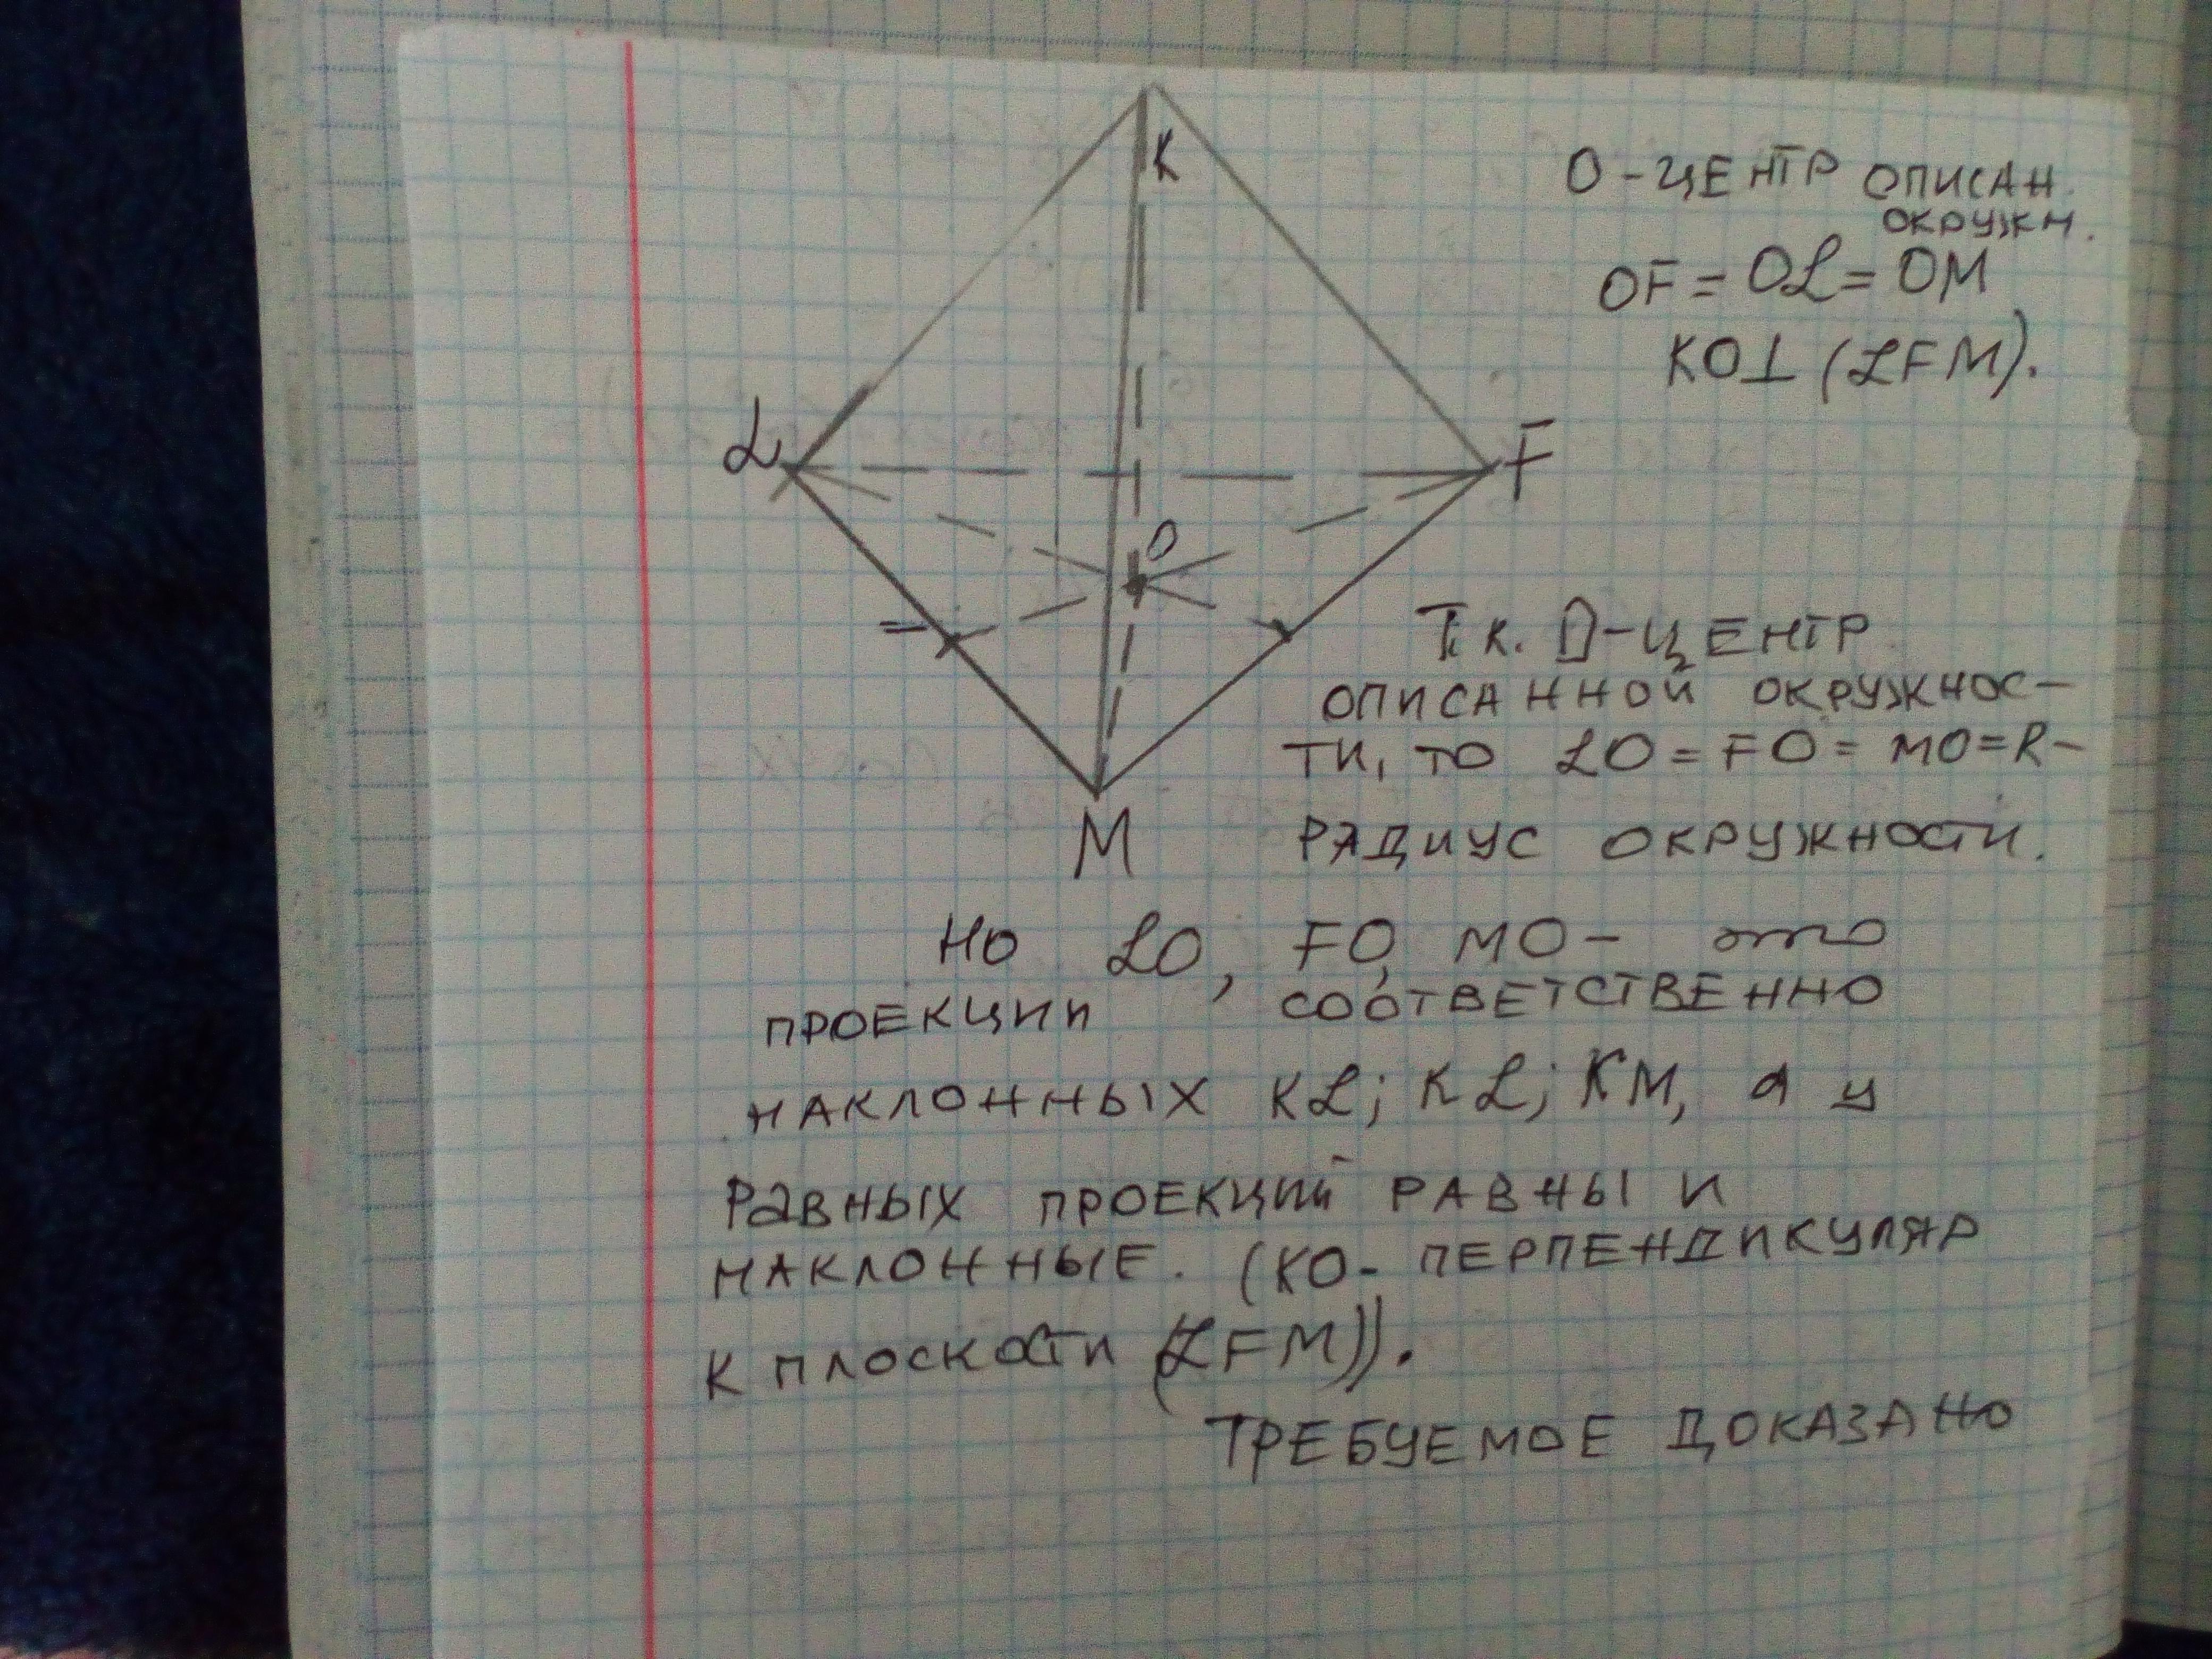 K
O - ЦЕНТР ОПИСАН.
ОКРУЖН.
OF = OL = OM
KO⊥ (LFM).
L
F
O
Т.к. O - ЦЕНТР
ОПИСАННОЙ ОКРУЖНОС-
ТИ, ТО LO = FO = MO = R -
M
РАДИУС ОКРУЖНОСТИ.
НО LO, FO, MO - это
ПРОЕКЦИИ СООТВЕТСТВЕННО
НАКЛОННЫХ KL; KL; KM, а у
РАВНЫХ ПРОЕКЦИЙ РАВНЫ И
НАКЛОННЫЕ. (KO - ПЕРПЕНДИКУЛЯР
К ПЛОСКОСТИ (LFM)).
ТРЕБУЕМОЕ ДОКАЗАНО